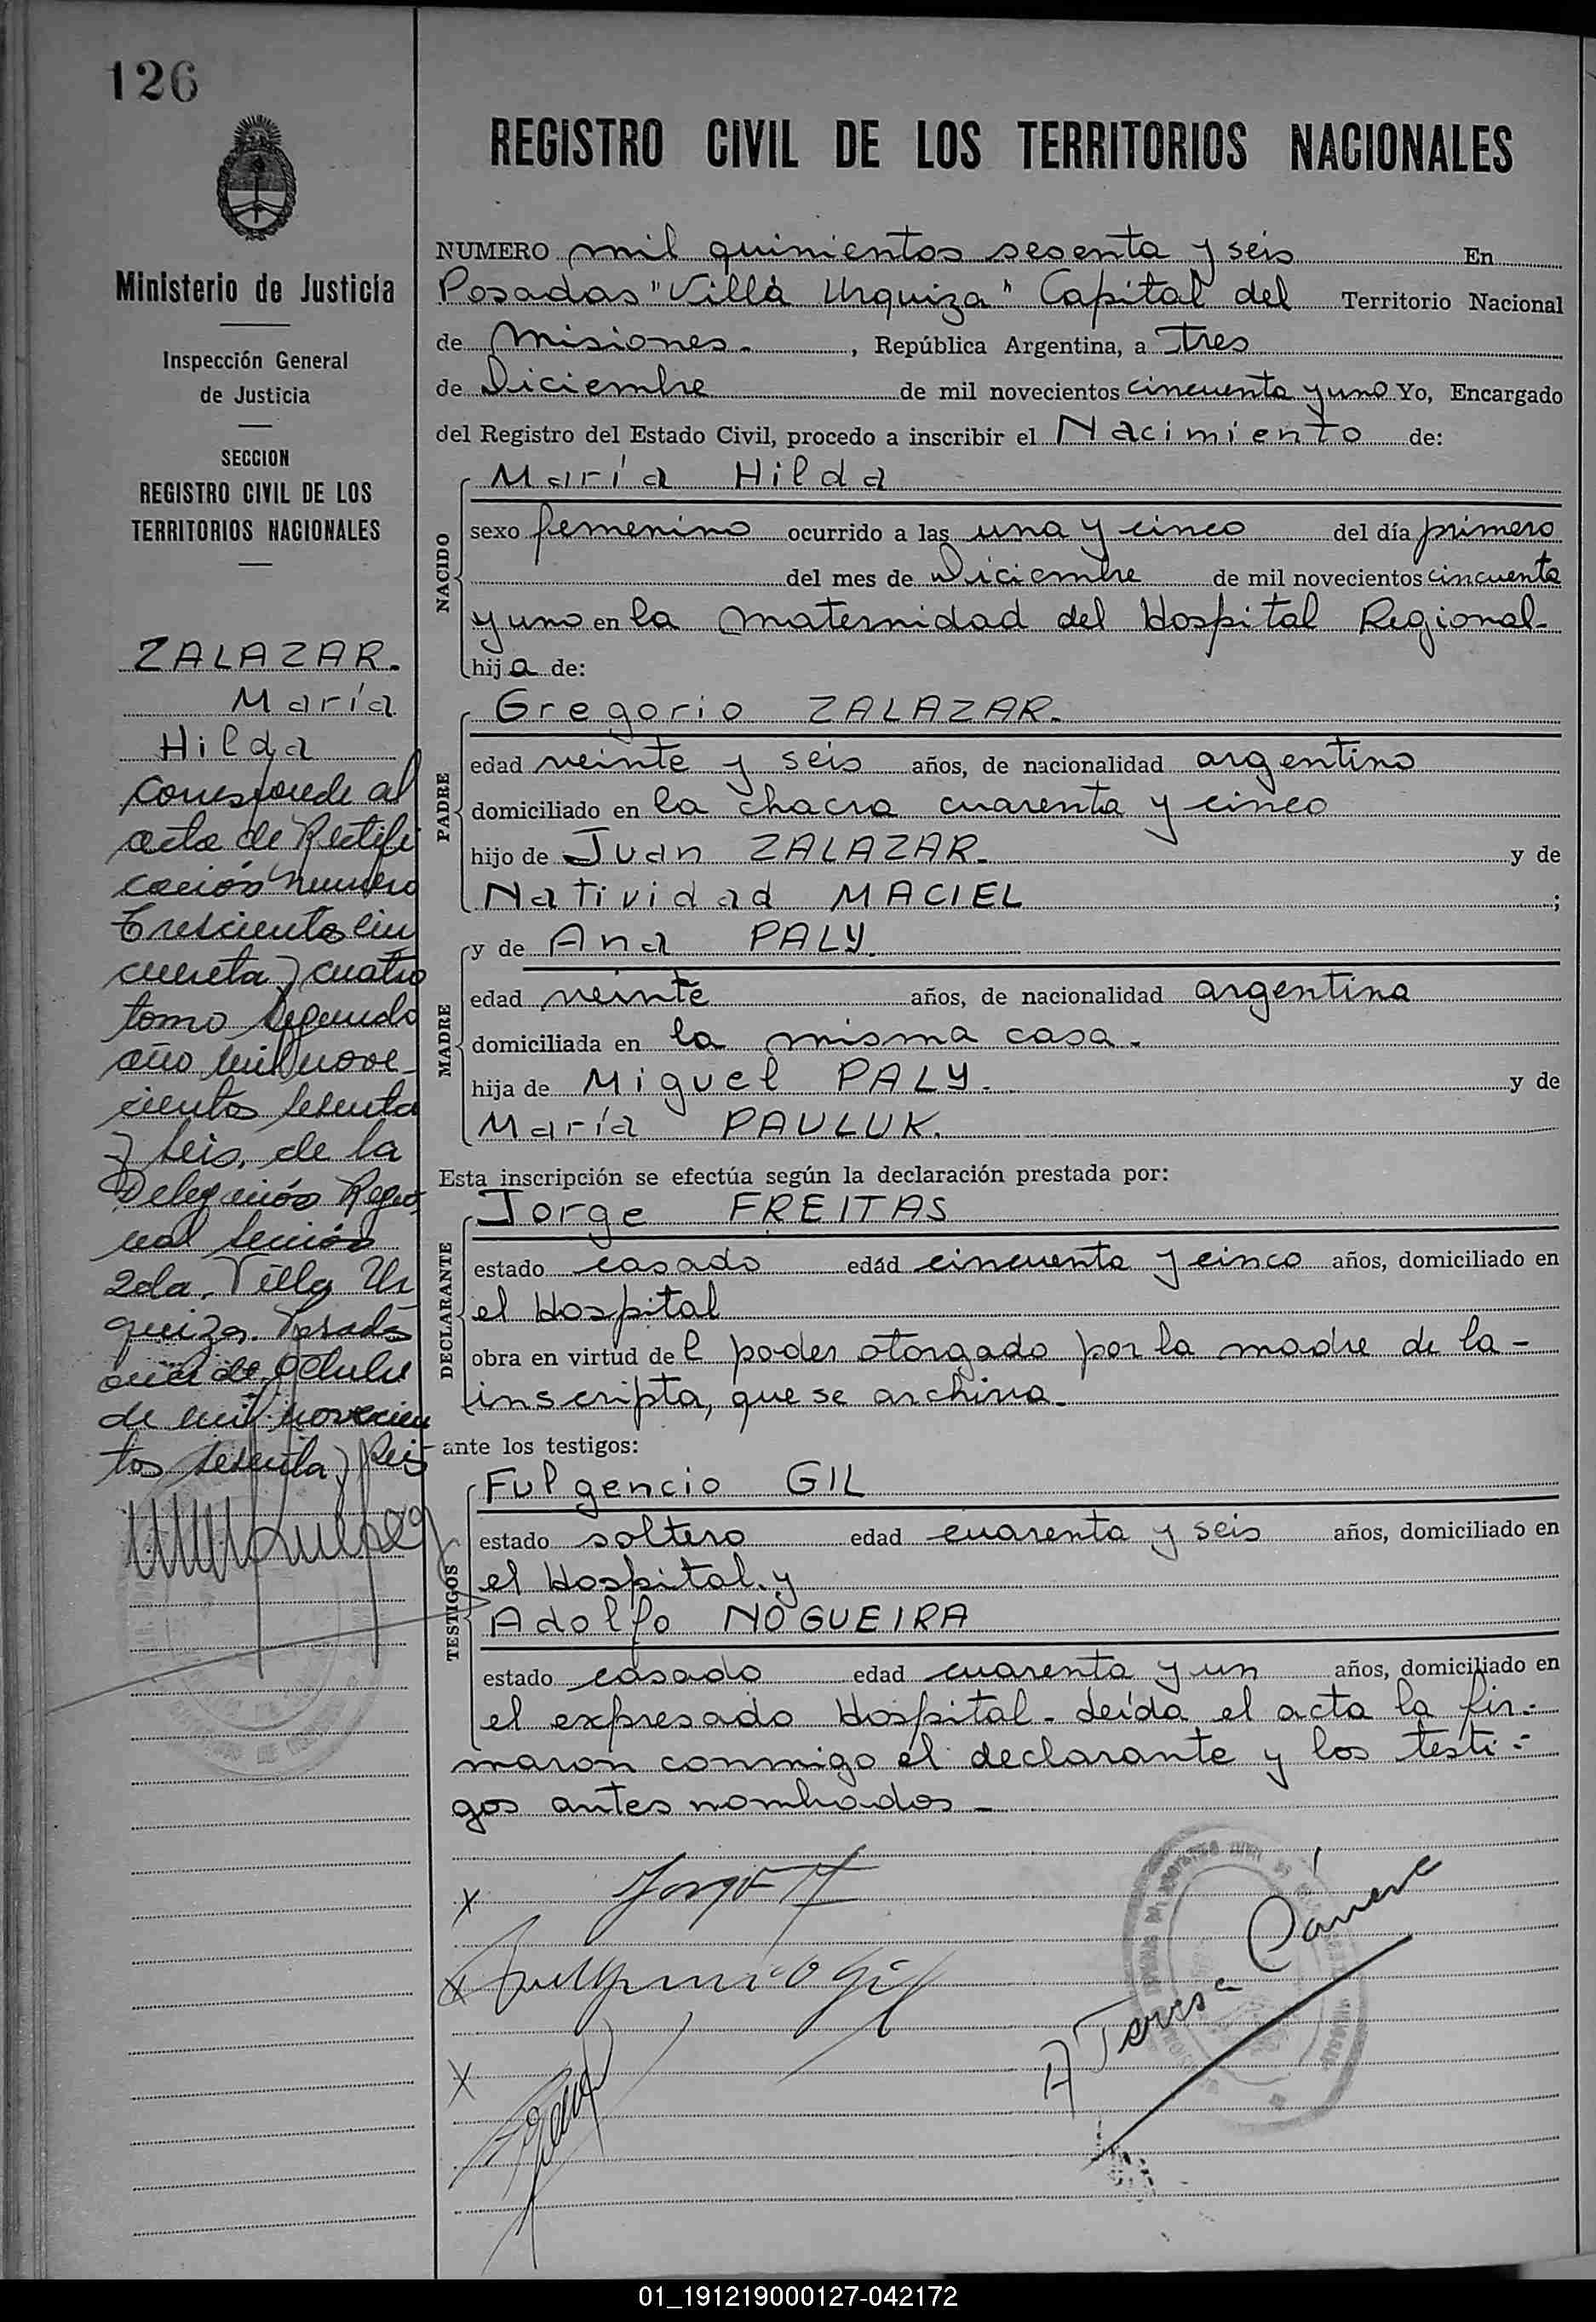 126
Ministerio de Justicia
Inspección General
de Justicia
SECCION
REGISTRO CIVIL DE LOS
TERRITORIOS NACIONALES
ZALAZAR.
María
Hilda
Corresponde al
acta de Rectifi
cación numero
Trescientos cin
cuenta y cuatro
tomo segundo
año mil nove-
cientos sesenta
y seis, de la
Delegación Regio
nal Sección
2da. Villa Ur
quiza. Posadas
de Octubre
de mil novecien
tos sesenta y seis
REGISTRO CIVIL DE LOS TERRITORIOS NACIONALES
NUMERO mil quinientos sesenta y seis En
Posadas "Villa Urquiza" Capital del Territorio Nacional
de Misiones. , República Argentina, a Tres
de Diciembre de mil novecientos cincuenta y uno Yo, Encargado
del Registro del Estado Civil, procedo a inscribir el Nacimiento de:
NACIDO
María Hilda
sexo femenino ocurrido a las una y cinco del día primero
del mes de Diciembre de mil novecientos cincuenta
y uno en la Maternidad del Hospital Regional-
hija de:
PADRE
Gregorio ZALAZAR.
edad veinte y seis años, de nacionalidad argentino
domiciliado en la chacra cuarenta y cinco
hijo de Juan ZALAZAR. y de
Natividad MACIEL ;
MADRE
y de Ana PALY.
edad veinte años, de nacionalidad argentina
domiciliada en la misma casa.
hija de Miguel PALY. y de
María PAULUK.
Esta inscripción se efectúa según la declaración prestada por:
DECLARANTE
Jorge FREITAS
estado casado edad cincuenta y cinco años, domiciliado en
el Hospital
obra en virtud del poder otorgado por la madre de la-
inscripta, que se archiva.
ante los testigos:
TESTIGOS
Fulgencio GIL
estado soltero edad cuarenta y seis años, domiciliado en
el Hospital. y
Adolfo NOGUEIRA
estado casado edad cuarenta y un años, domiciliado en
el expresado Hospital. Leída el acta la fir=
maron conmigo el declarante y los testi=
gos antes nombrados-
x Jorge
x Fulgencio Gil
x
A Teresa
01_191219000127-042172